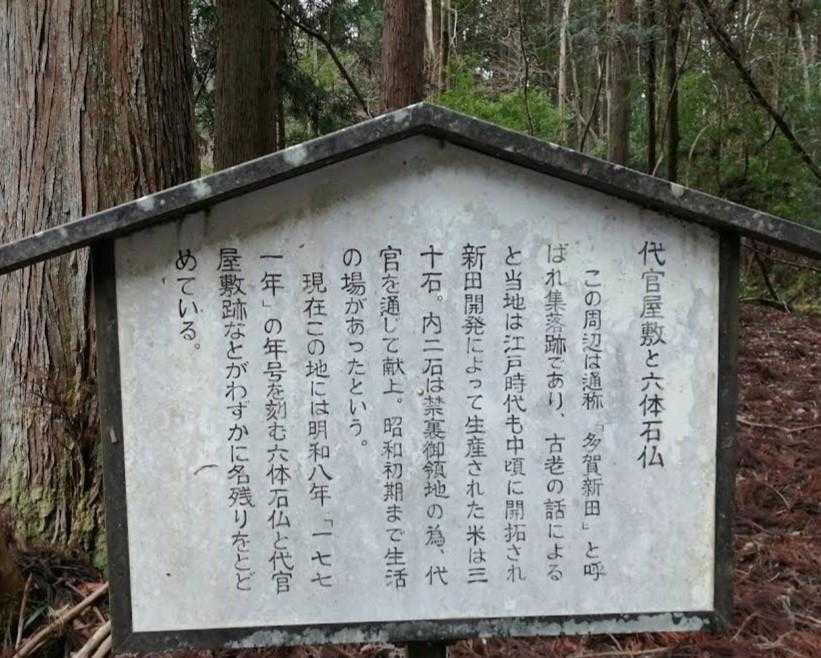 代官屋敷と六体石仏
この周辺は通称「多賀新田」と呼
ばれ集落跡であり、古老の話による
と当地は江戸時代も中頃に開拓され
新田開発によって生産された米は三
十石。内二石は禁裏御領地の為、代
官を通して献上。昭和初期まで生活
の場があったという。
現在この地には明和八年「一七七
一年」の年号を刻む六体石仏と代官
屋敷跡などがわずかに名残りをとど
めている。